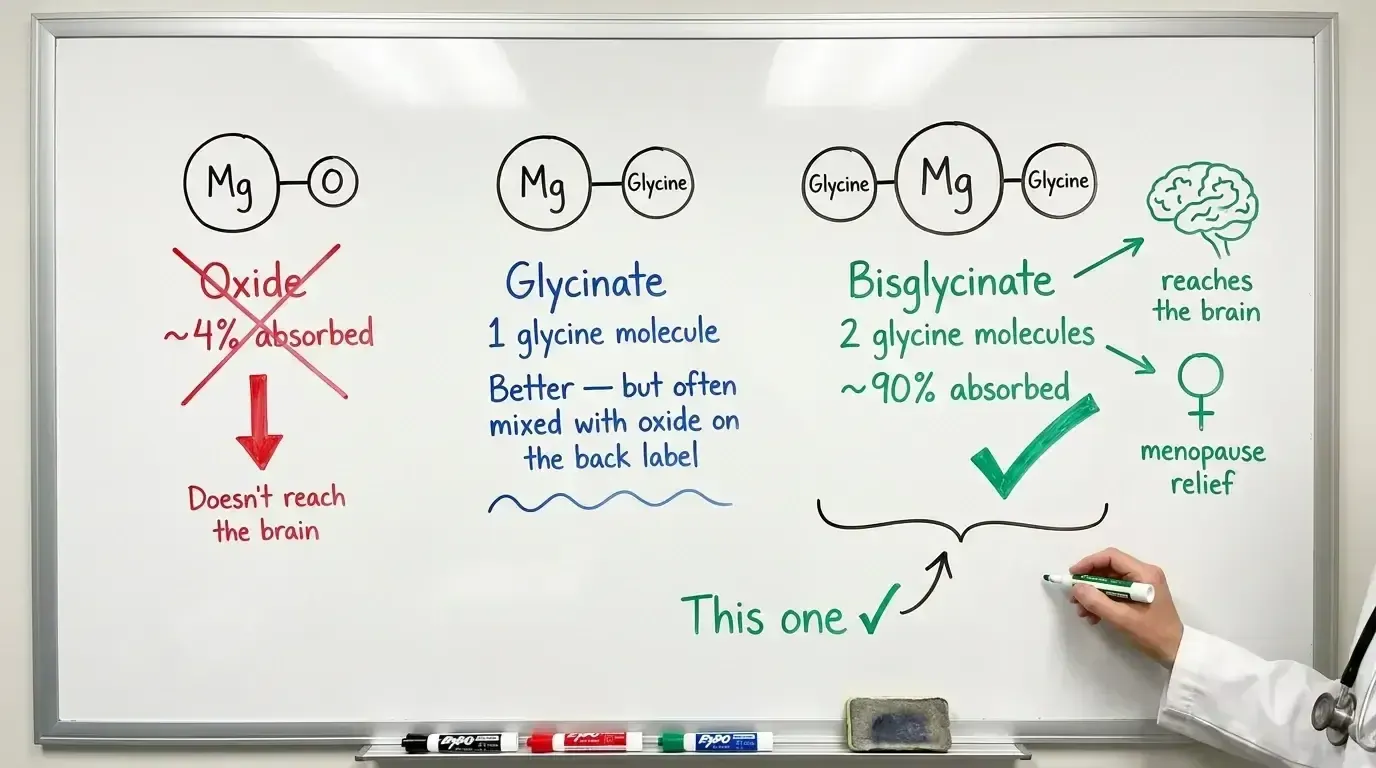 Mg
O
Oxide
~4% absorbed
Doesn't reach
the brain
Mg
Glycine
Glycinate
1 glycine molecule
Better — but often
mixed with oxide on
the back label
Glycine
Mg
Glycine
Bisglycinate
2 glycine molecules
~90% absorbed
reaches
the brain
menopause
relief
This one
EXPO
EXPO
EXPO